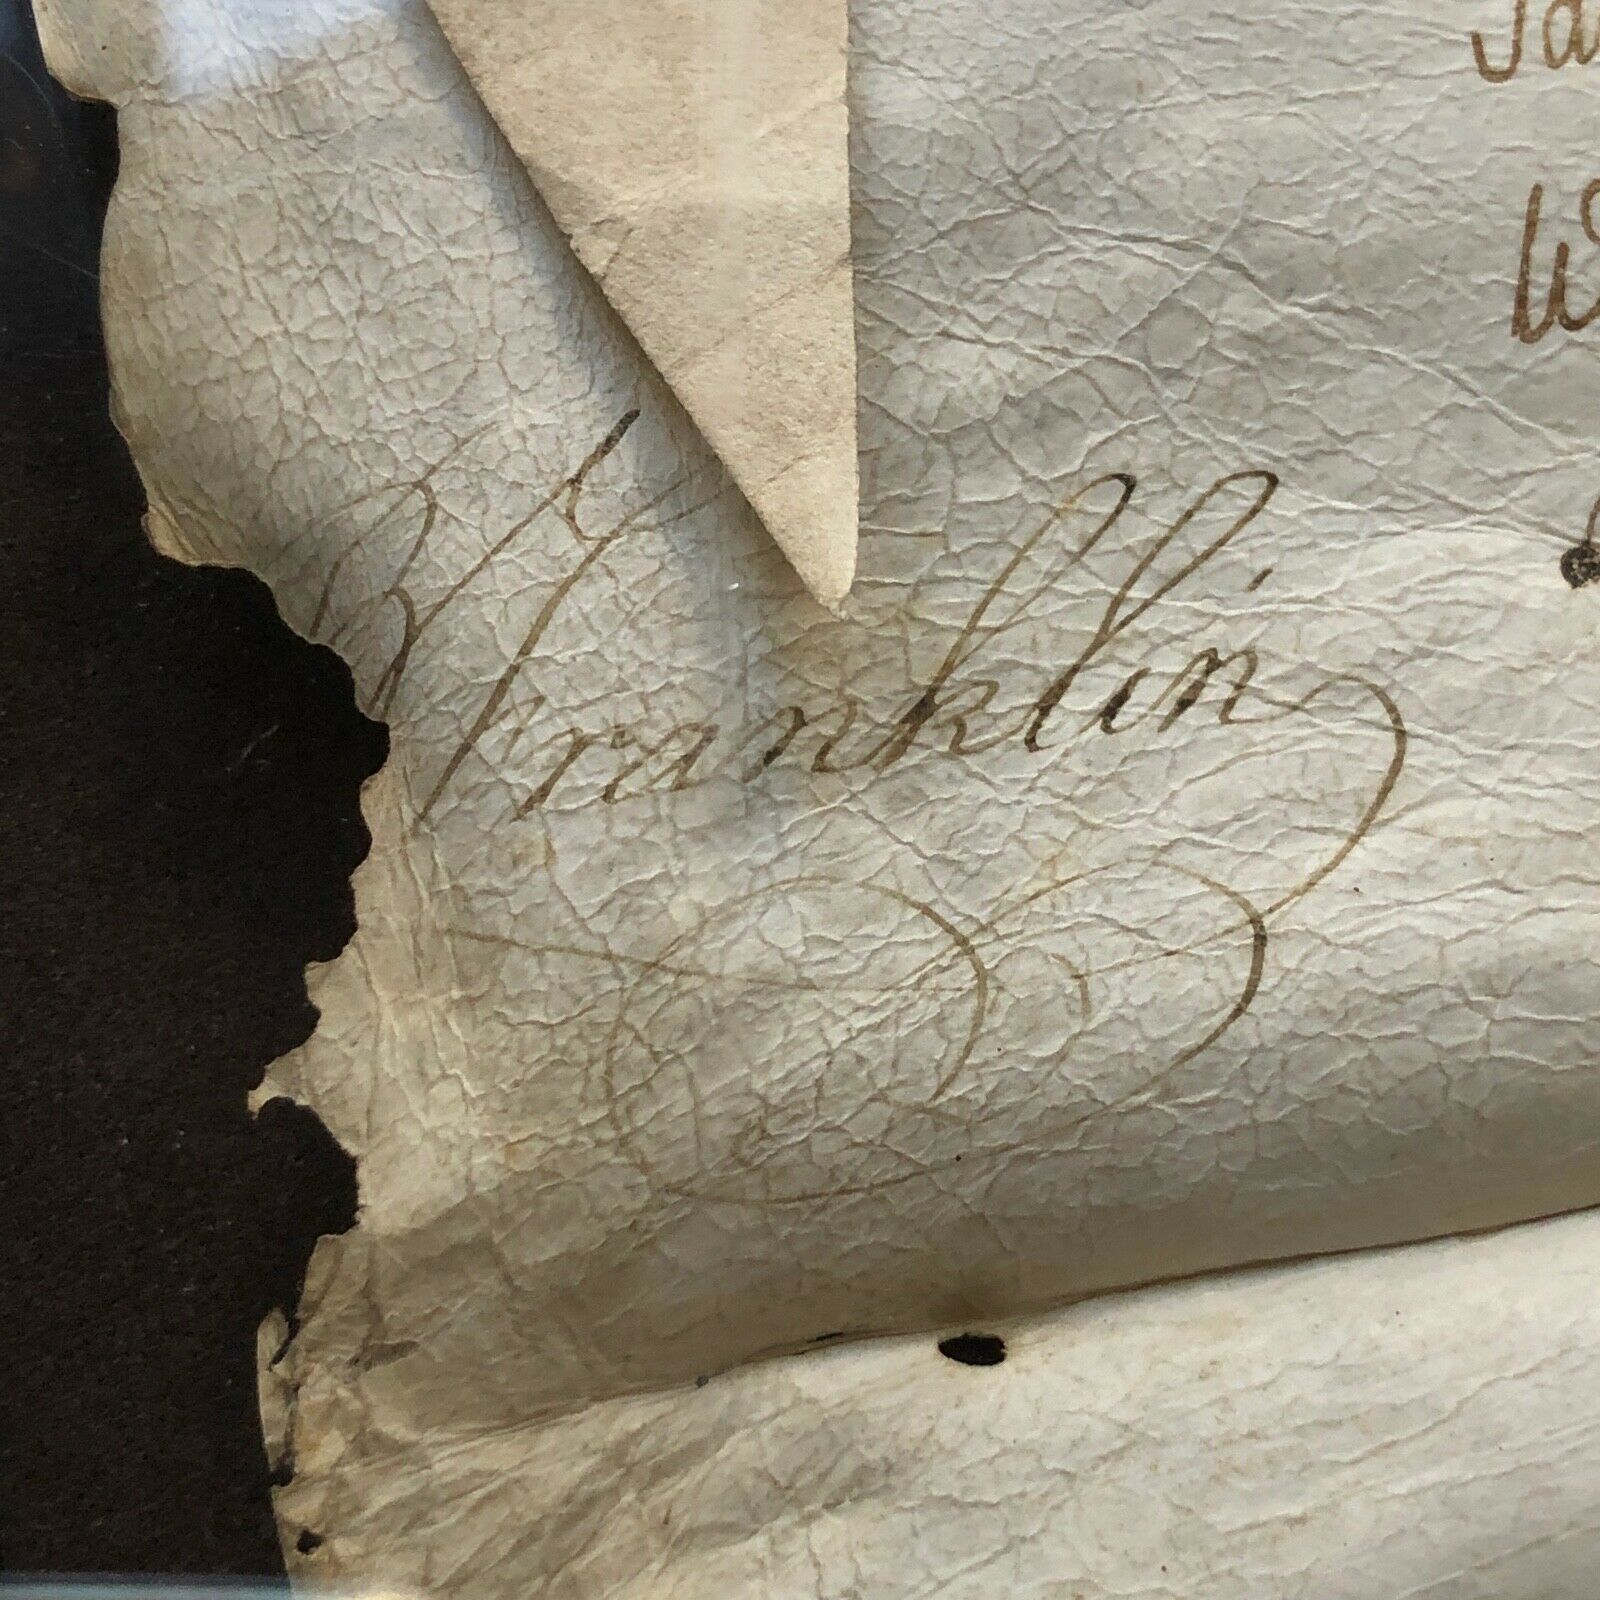 Ja
W
B Franklin